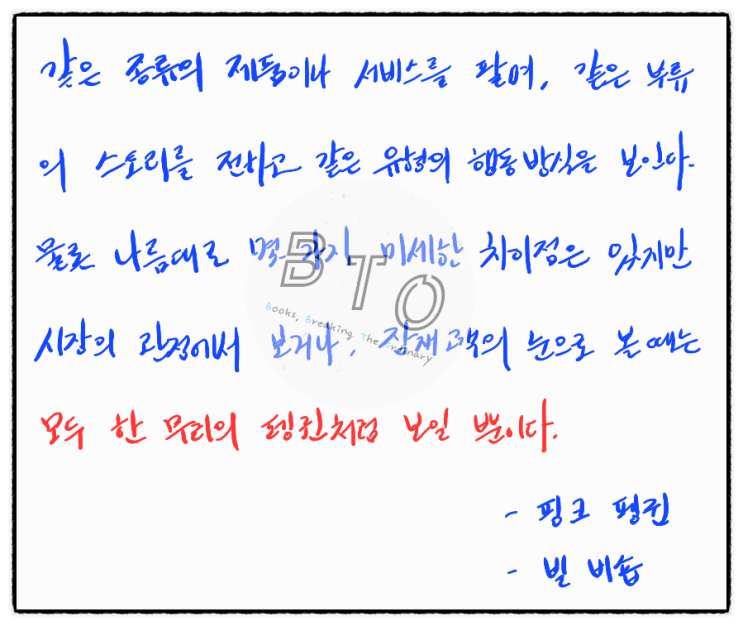 같은 종류의 제품이나 서비스를 팔며, 같은 부류
의 스토리를 전하고 같은 유형의 행동방식을 보인다.
물론 나름대로 몇 가지 미세한 차이점은 있지만
시장의 관점에서 보거나, 잠재고객의 눈으로 볼 때는
모두 한 무리의 펭귄처럼 보일 뿐이다.
- 핑크 펭귄
- 빌 비숍
BTO
Books, Breaking The Ordinary